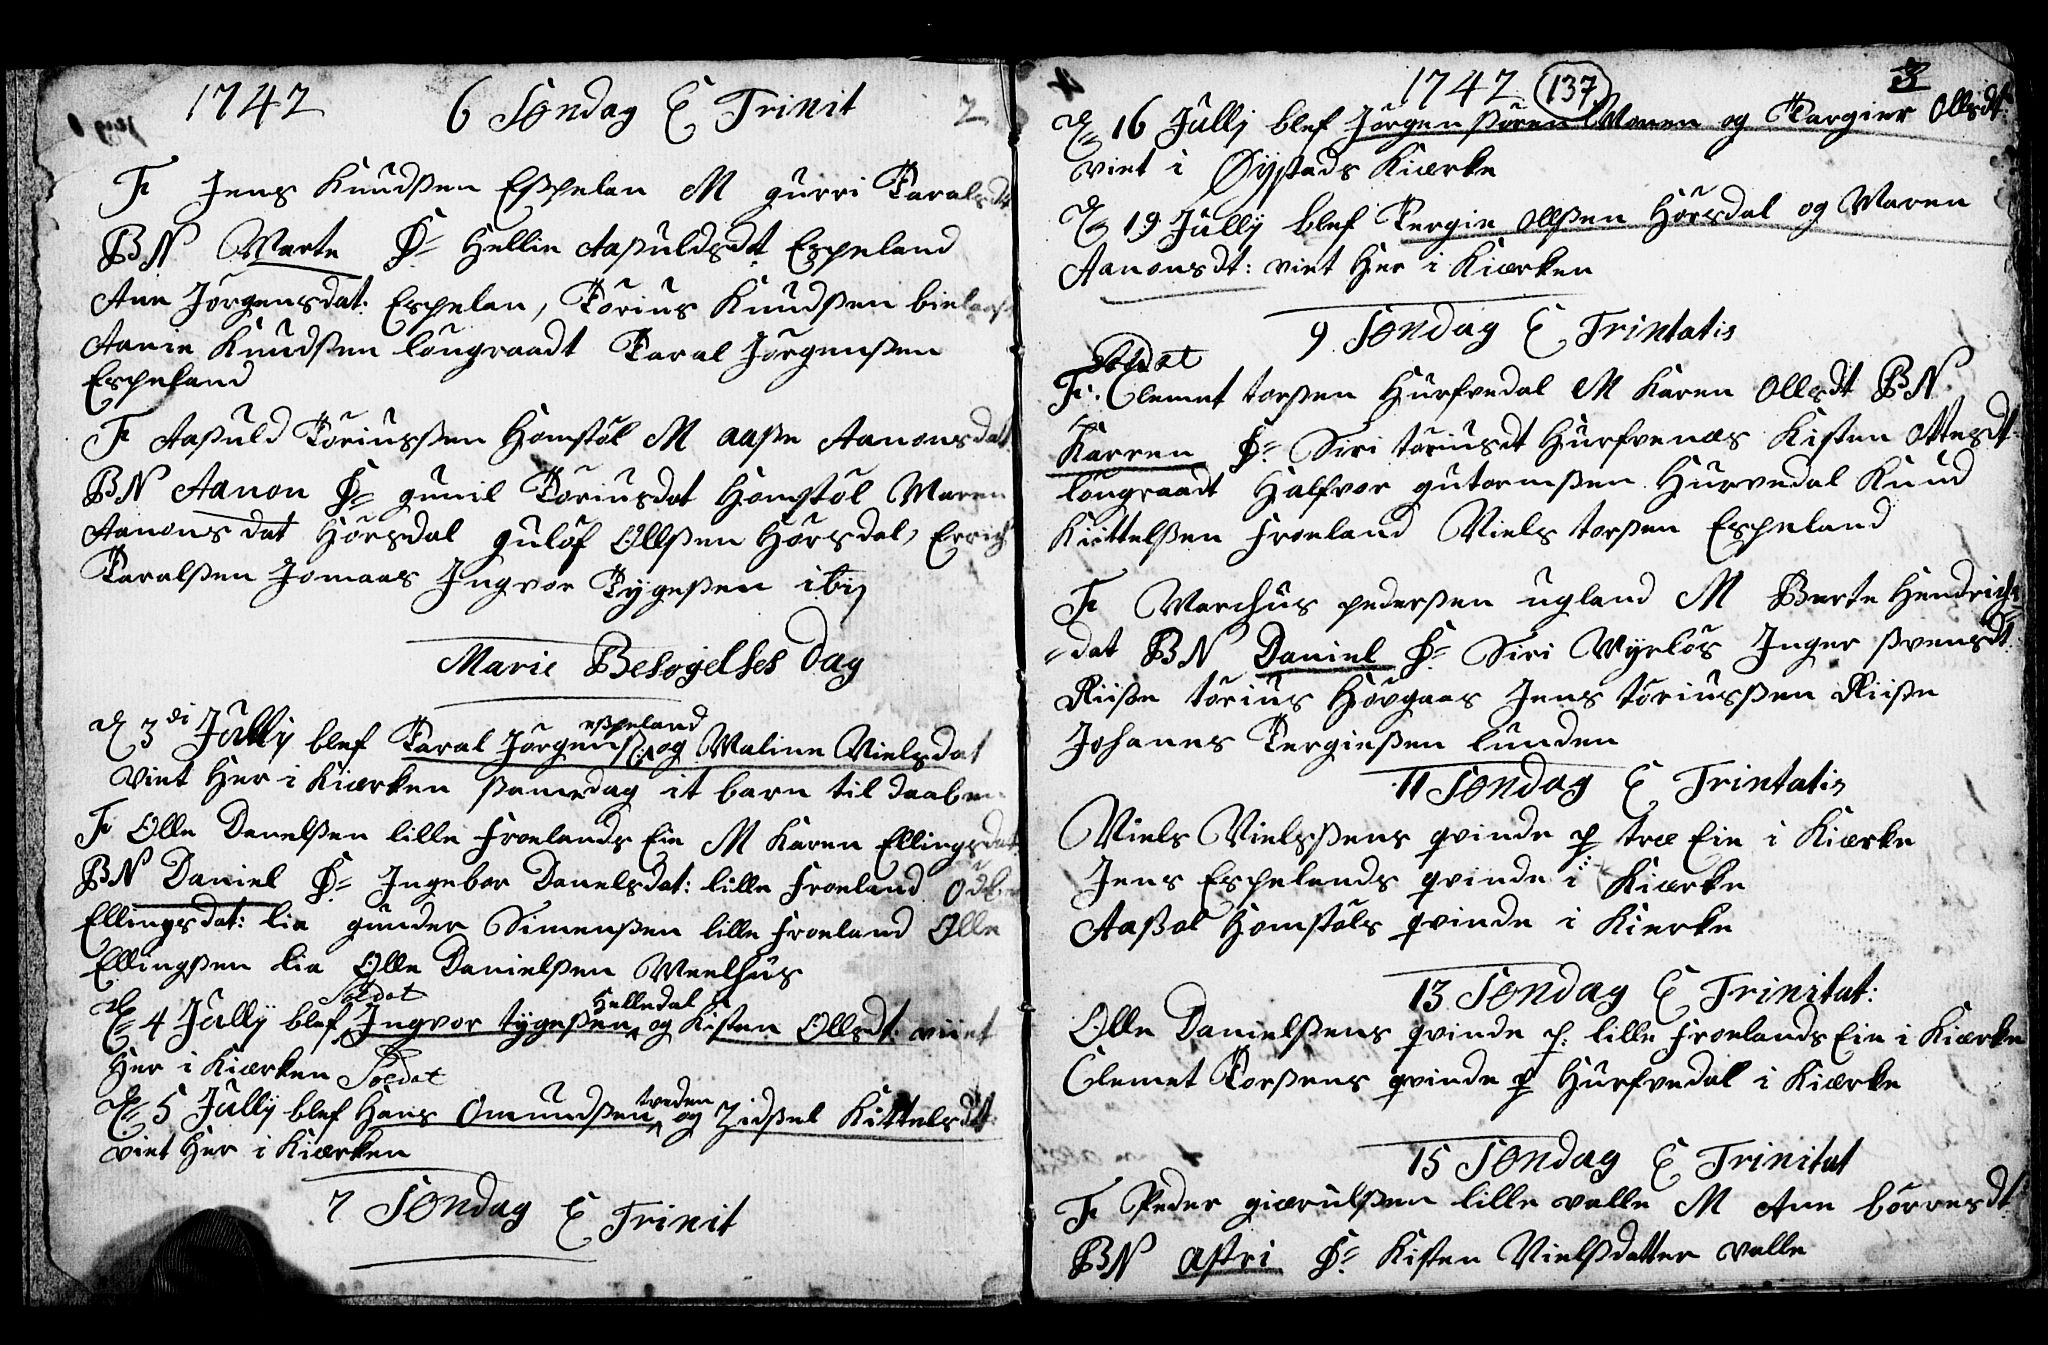 1742 6 Søndag E Trinit 2
F Jens Knudsen Espelan M gurri Taralsdt
BN Marte F= Hellie Aasuldsdt Espeland
Ann Jørgensdat: Espelan, Torius Knudsen
Aanie Knudsen lougraadt Taral Jørgensen
Espeland
F Aasuld Toriussen Homstøl M aase Aanonsdatt
BN Aanon F= gunil Toriusdat Homstøl Maren
Aanons dat Hørsdal gulof Ollsen Hørsdal, Errich
Taralsen Jomaas Ingvor Tygesen ibij
Marie Besøgelses Dag
D 3di Jullij blef Taral Jørgens: espeland og Maline Nielsdat
viet Her i Kiærken samedag it barn til daaben
F Olle Danelsen lille Froelands Eie M Karen Ellingsdat
BN Daniel F= Ingebor Danelsdat: lille Froeland
Ellingsdat: lia gunder Simensen lille Froeland Olle
Ellingsen lia Olle Danielsen Meelhus
D= 4 Jullij blef Soldat Ingvor tygesen Helledal og Kisten Ollsdt: viet
Her i Kiærken
D= 5 Jullij blef Soldat Hans Omundsen tveden og Zidsel Kittelsdt:
viet Her i Kiærken
7 Søndag E Trinit
1742 137 3
D= 16 Jullj blef Jørgen Sørens Monen og Targier Ollsdt:
viet i Øystads Kiærke
D= 19 Jullij blef Tergie Ollsen Hørsdal og Maren
Aanonsdt: viet Her i Kiærken
9 Søndag E Trintatis
Soldat
F. Clemet torsen Hurfvedal M Karen Ollsdt BN
Karren F= Siri toriusdt Hurfvenæs Kisten Ottesdt:
lougraadt Halfvor gutormsen Hurvedal Knud
Kiettelsen Froeland Niels torsen Espeland
F Marchus pedersen ugland M Berte Hendrichs=
=dat BN Daniel F= Siri Myrløs Inger svensdt
Riise torius Hovgaas Jens toriussen Riise
Johanes Tergiesen lunden
11 Søndag E Trintatis
Niels Nielsens qvinde p træ Eie i Kiærke
Jens Espelands qvinde i Kiærke
Aasol Homstøls qvinde i Kierke
13 Søndag E Trinitat:
Olle Danielsens qvinde p: lille Froelands Eie i Kiærke
Clemet Torsens qvinde p Hurfvedal i Kiærke
15 Søndag E Trinitat
F Peder giærulsen lille valle M Ane børresdt
BN Astri F= Kisten Nielsdatter valle